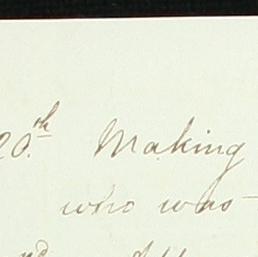 20th. Making
who was